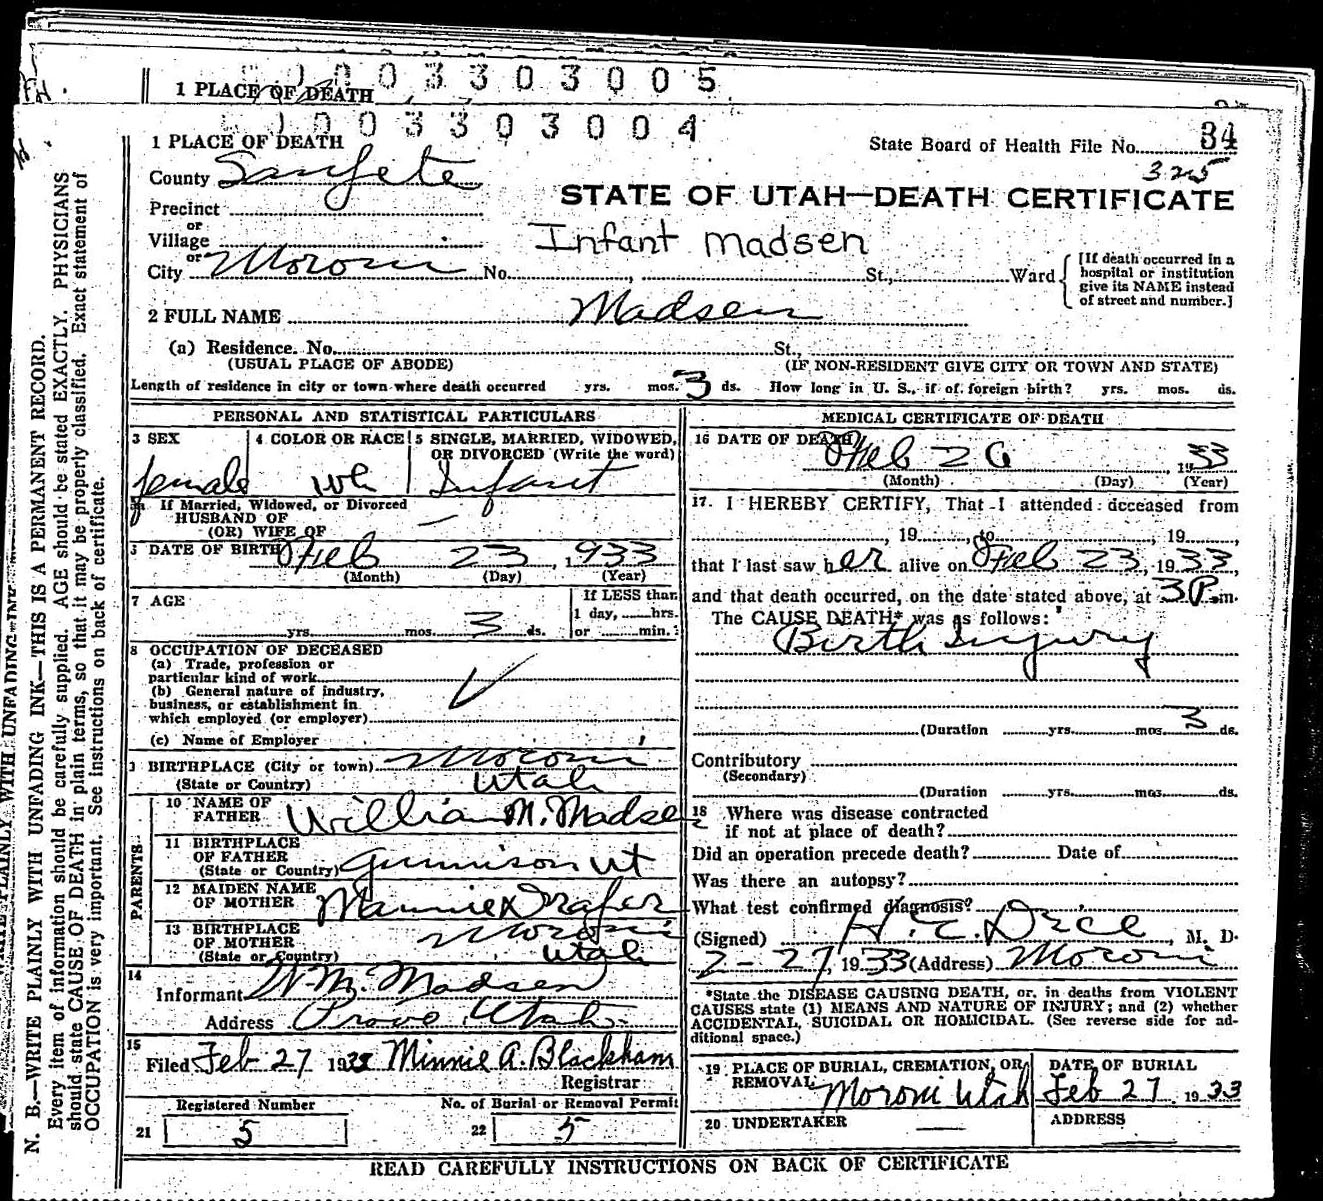 0003303005
1 PLACE OF DEATH
0003303004
1 PLACE OF DEATH
State Board of Health File No. 34
325
County Sanpete
STATE OF UTAH—DEATH CERTIFICATE
Precinct
or
Village
Infant Madsen
or
City Moroni No. , St., Ward
[If death occurred in a
hospital or institution
give its NAME instead
of street and number.]
2 FULL NAME Madsen
(a) Residence. No. St.,
(USUAL PLACE OF ABODE) (IF NON-RESIDENT GIVE CITY OR TOWN AND STATE)
Length of residence in city or town where death occurred yrs. mos. 3 ds. How long in U. S., if of foreign birth? yrs. mos. ds.
PERSONAL AND STATISTICAL PARTICULARS
3 SEX 4 COLOR OR RACE 5 SINGLE, MARRIED, WIDOWED,
OR DIVORCED (Write the word)
female wh Infant
If Married, Widowed, or Divorced
HUSBAND OF
(OR) WIFE OF —
DATE OF BIRTH Feb 23, 1933
(Month) (Day) (Year)
7 AGE If LESS than
1 day, hrs.
yrs. mos. 3 ds. or min.
8 OCCUPATION OF DECEASED
(a) Trade, profession or
particular kind of work
(b) General nature of industry,
business, or establishment in
which employed (or employer)
(c) Name of Employer
BIRTHPLACE (City or town) Moroni
(State or Country) Utah
PARENTS
10 NAME OF
FATHER William M. Madsen
11 BIRTHPLACE
OF FATHER
(State or Country) Gunnison Ut
12 MAIDEN NAME
OF MOTHER Mannie Draper
13 BIRTHPLACE
OF MOTHER Moroni
(State or Country) Utah
14
Informant W. M. Madsen
Address Provo Utah
15
Filed Feb 27 1933 Minnie A. Blackham
Registrar
Registered Number No. of Burial or Removal Permit
21 5 22 5
MEDICAL CERTIFICATE OF DEATH
16 DATE OF DEATH Feb 26, 1933
(Month) (Day) (Year)
17. I HEREBY CERTIFY, That I attended deceased from
, 19 , to , 19 ,
that I last saw her alive on Feb 23, 1933,
and that death occurred, on the date stated above, at 3 P.m.
The CAUSE DEATH* was as follows:
Birth Injury
(Duration yrs. mos. 3 ds.
Contributory
(Secondary)
(Duration yrs. mos. ds.
18 Where was disease contracted
if not at place of death?
Did an operation precede death? Date of
Was there an autopsy?
What test confirmed diagnosis?
(Signed) H. C. , M. D.
2-27, 1933 (Address) Moroni
*State the DISEASE CAUSING DEATH, or, in deaths from VIOLENT
CAUSES state (1) MEANS AND NATURE OF INJURY; and (2) whether
ACCIDENTAL, SUICIDAL OR HOMICIDAL. (See reverse side for ad-
ditional space.)
19 PLACE OF BURIAL, CREMATION, OR
REMOVAL Moroni Utah
DATE OF BURIAL
Feb 27 1933
20 UNDERTAKER — ADDRESS —
READ CAREFULLY INSTRUCTIONS ON BACK OF CERTIFICATE
N. B.—WRITE PLAINLY WITH UNFADING INK—THIS IS A PERMANENT RECORD.
Every item of information should be carefully supplied. AGE should be stated EXACTLY. PHYSICIANS
should state CAUSE OF DEATH in plain terms, so that it may be properly classified. Exact statement of
OCCUPATION is very important. See instructions on back of certificate.